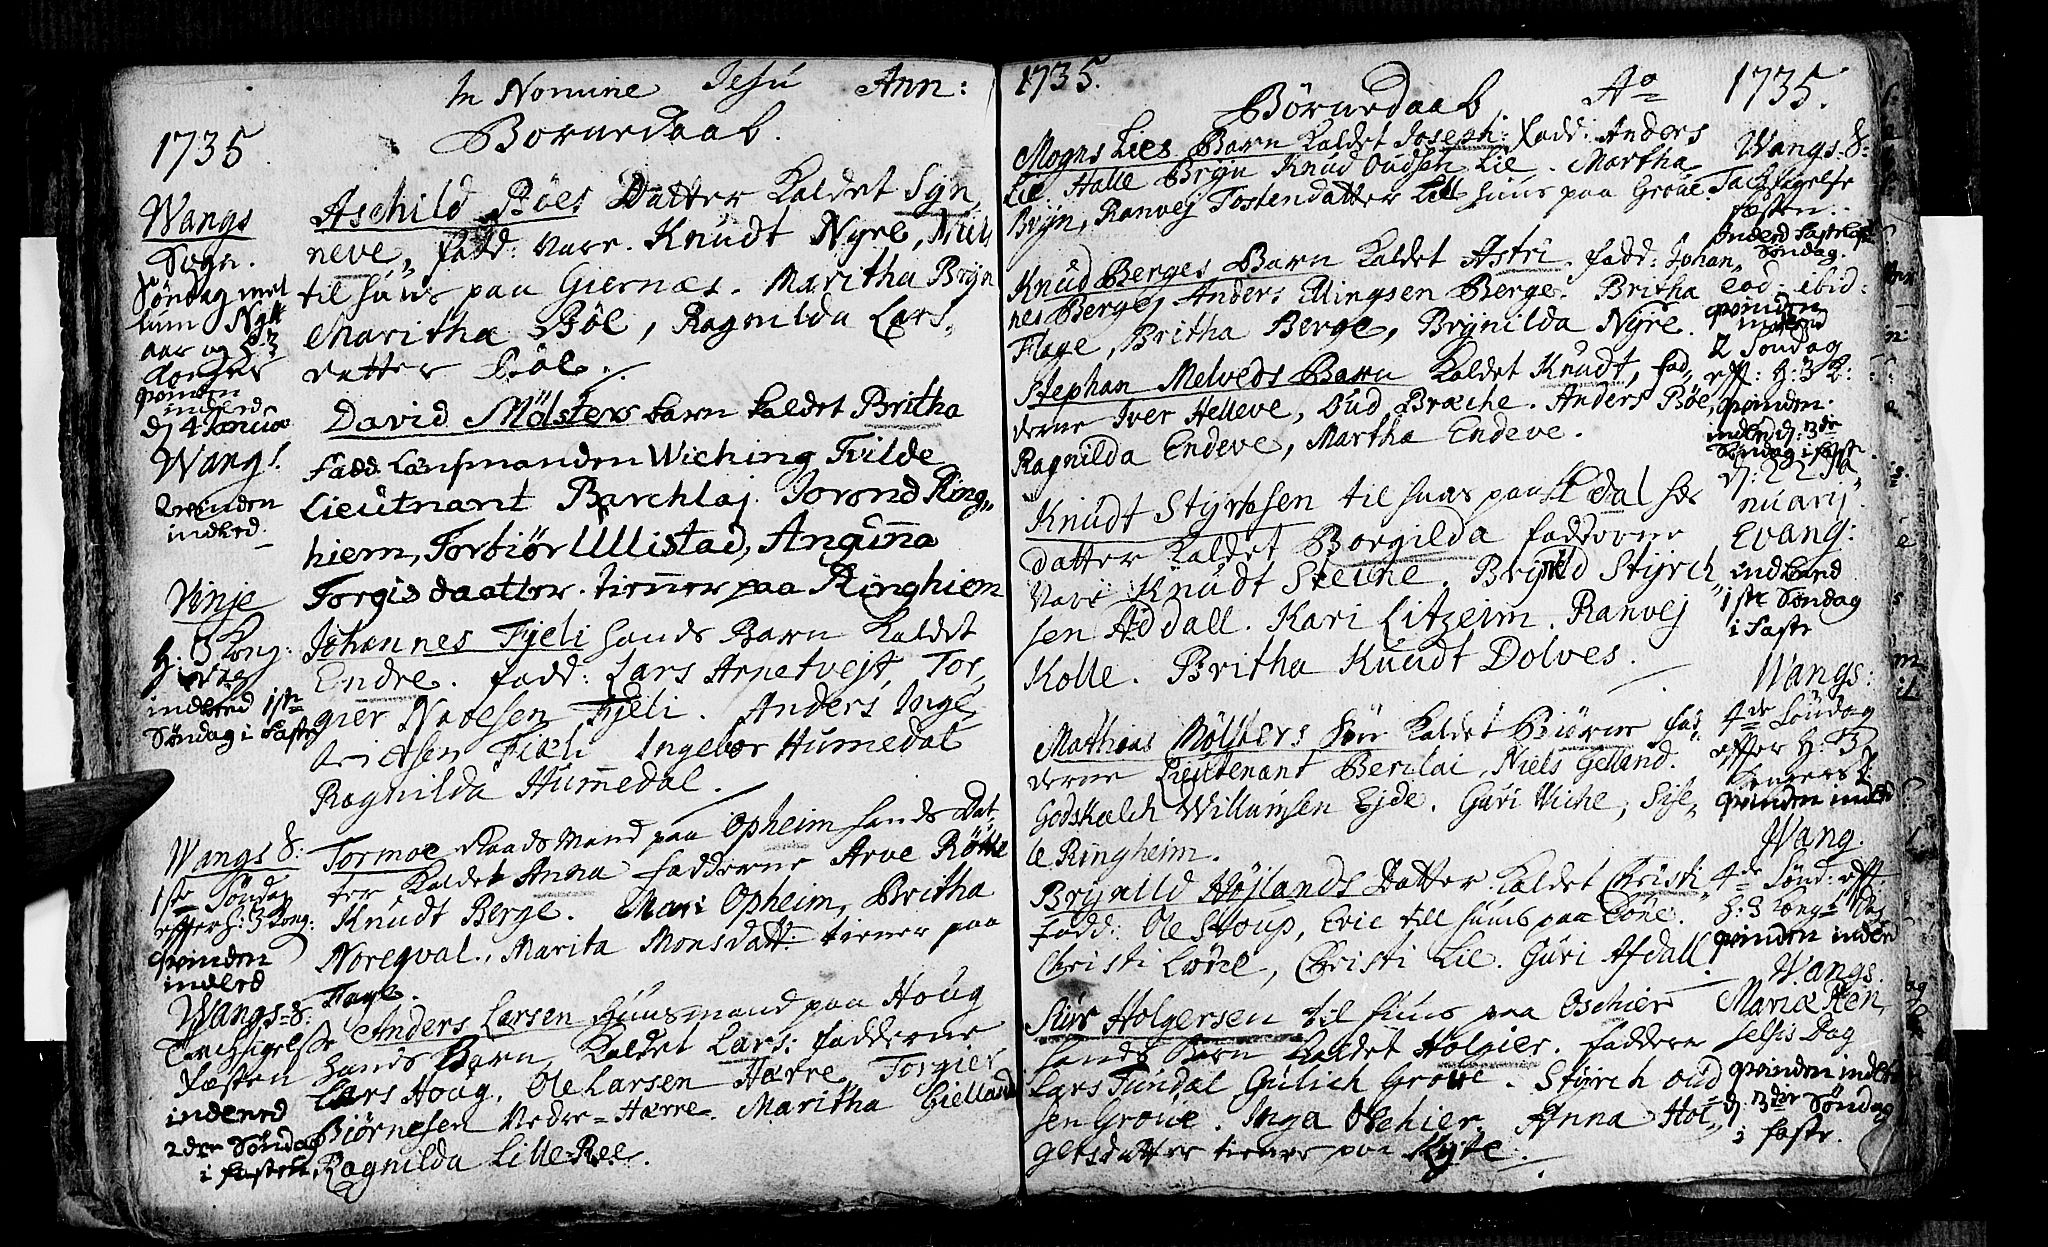 In Nomine Jesu Ann:
1735
Börnedaab.
Wangs
Sogn.
Söndag mel
lum Nytt
aar og H: 3
Konger
qvinden
inderd
d/ 4 Januæ
Aschild Böes Datter kaldet Syn,
neve, fadd: vare. Knudt Nyre, Niels
til huus paa Giernæs. Maritha Bryn
Maritha Böe, Ragnilda Lars,
datter Böe.
Wangs.
Qvinden
indled.
David Mölsters barn kaldet Britha
Fadd Lensmanden Wiching Tvilde
Lieutnant Barchlaj. Jorond Ring,
hiem, Torbiör Ullistad, Anguna
Torgisdaatter. tienner paa Ringhiem
Vinje
H: 3 Kong:
dag
indled 1ste
Söndag i Faste
Johannes Fjeli hands Barn kaldet
Endre. fadd: Lars Arnetvejt, Tor,
gier Navesen Fjeli. Anders Inge
Fiæli Ingebor Humedal
Ragnilda Humedal.
Wangs S:
1ste Söndag
effter H: 3 Kong:
qvinden
indled
Tormoe Raads Mand paa Opheim hands Dat,
ter kaldet Anna fadderne Arve Röthe
Knudt Berge. Mari Opheim, Britha
Noreqval, Marita Monsdatt: tiener paa
Flage.
Wangs S:
Tachsigelse
Fæsten
indlened
2dre Söndag
i fasten
Anders Larsen Huusmand paa Houg
hands Barn kaldet Lars: fadderne
Lars Houg, Ole Larsen Hærre, Torgier
Biörnesen Nedre-Hærre. Maritha Gielland
Ragnilda Lille-Ree.
1735.
Börnedaab. Ao 1735.
Mogns Lies Barn kaldet Joseph: fadd: Anders
Lie, Halle Bryn Knud Oudsen Lie. Martha
Bryn, Ranvej Tostendatter till huus paa Groue.
Wangs S:
Tachsigelse
fæsten.
inderd Fastelafns
Söndag.
Knud Berges Barn kaldet Astri. fadd: Johan,
nes Berge, Anders Ellingsen Berge. Britha
Flage, Britha Berge, Brynilda Nyre.
eod: ibid:
qvinden
inderd
Stephan Melveds Barn kaldet Knudt, fad,
derne Iver Helleve, Oud Bræche. Anders Böe,
Ragnilda Endeve, Martha Endeve.
2 Söndag
eff: H: 3 K:
qvinden
indled d: 3de
Söndag i faste
Knudt Styrksen til huus paa Aadal hs
datter kaldet Borgilda fadderne
vare Knudt Steine. Brynild Styrch,
sen Addall. Kari Litzeim. Ranvej
Kolle. Britha Knudt Dolves.
d: 22 Ja
nuarij
Evang:
indleed
1ste Söndag
i Faste
Mathias Mölsters Sön kaldet Biörne fad,
derne Lieutenant Berclai, Niels Gelland.
Godskalch Willumsen Ejde. Guri Wiche, Sise,
le Ringheim.
Wangs:
4de Söndag
effter H: 3
Kongers d:
qvinden indled
Brynilld Höjlands Datter kaldet Christi
fadd: Ole Stoup, Eric till huus paa Löne.
Christi Löne, Christi Lie. Guri Afdall
Wang.
4de Sönd: eff:
H: 3 Kong: Dag
qvinden indled
Siur Holgersen til huus paa Oschier
hands Barn kaldet Holgier. fadderne
Lars Tundal Gulich Groue. Styrch Oud
sen Groue. Inga Oschier. Anna Hol,
gersdatter tiener paa Kyte.
Wangs.
Mariæ Ren,
selsis Dag
qvinden indled
d: 3die Söndag
i faste.